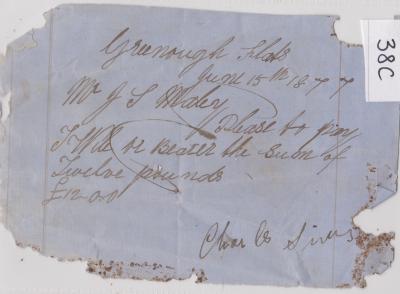 Greenough Flats
June 15th 1877
Mr J S Maley
Please to pay
or Bearer the Sum of
Twelve pounds
£12.0.0
Charles
38C